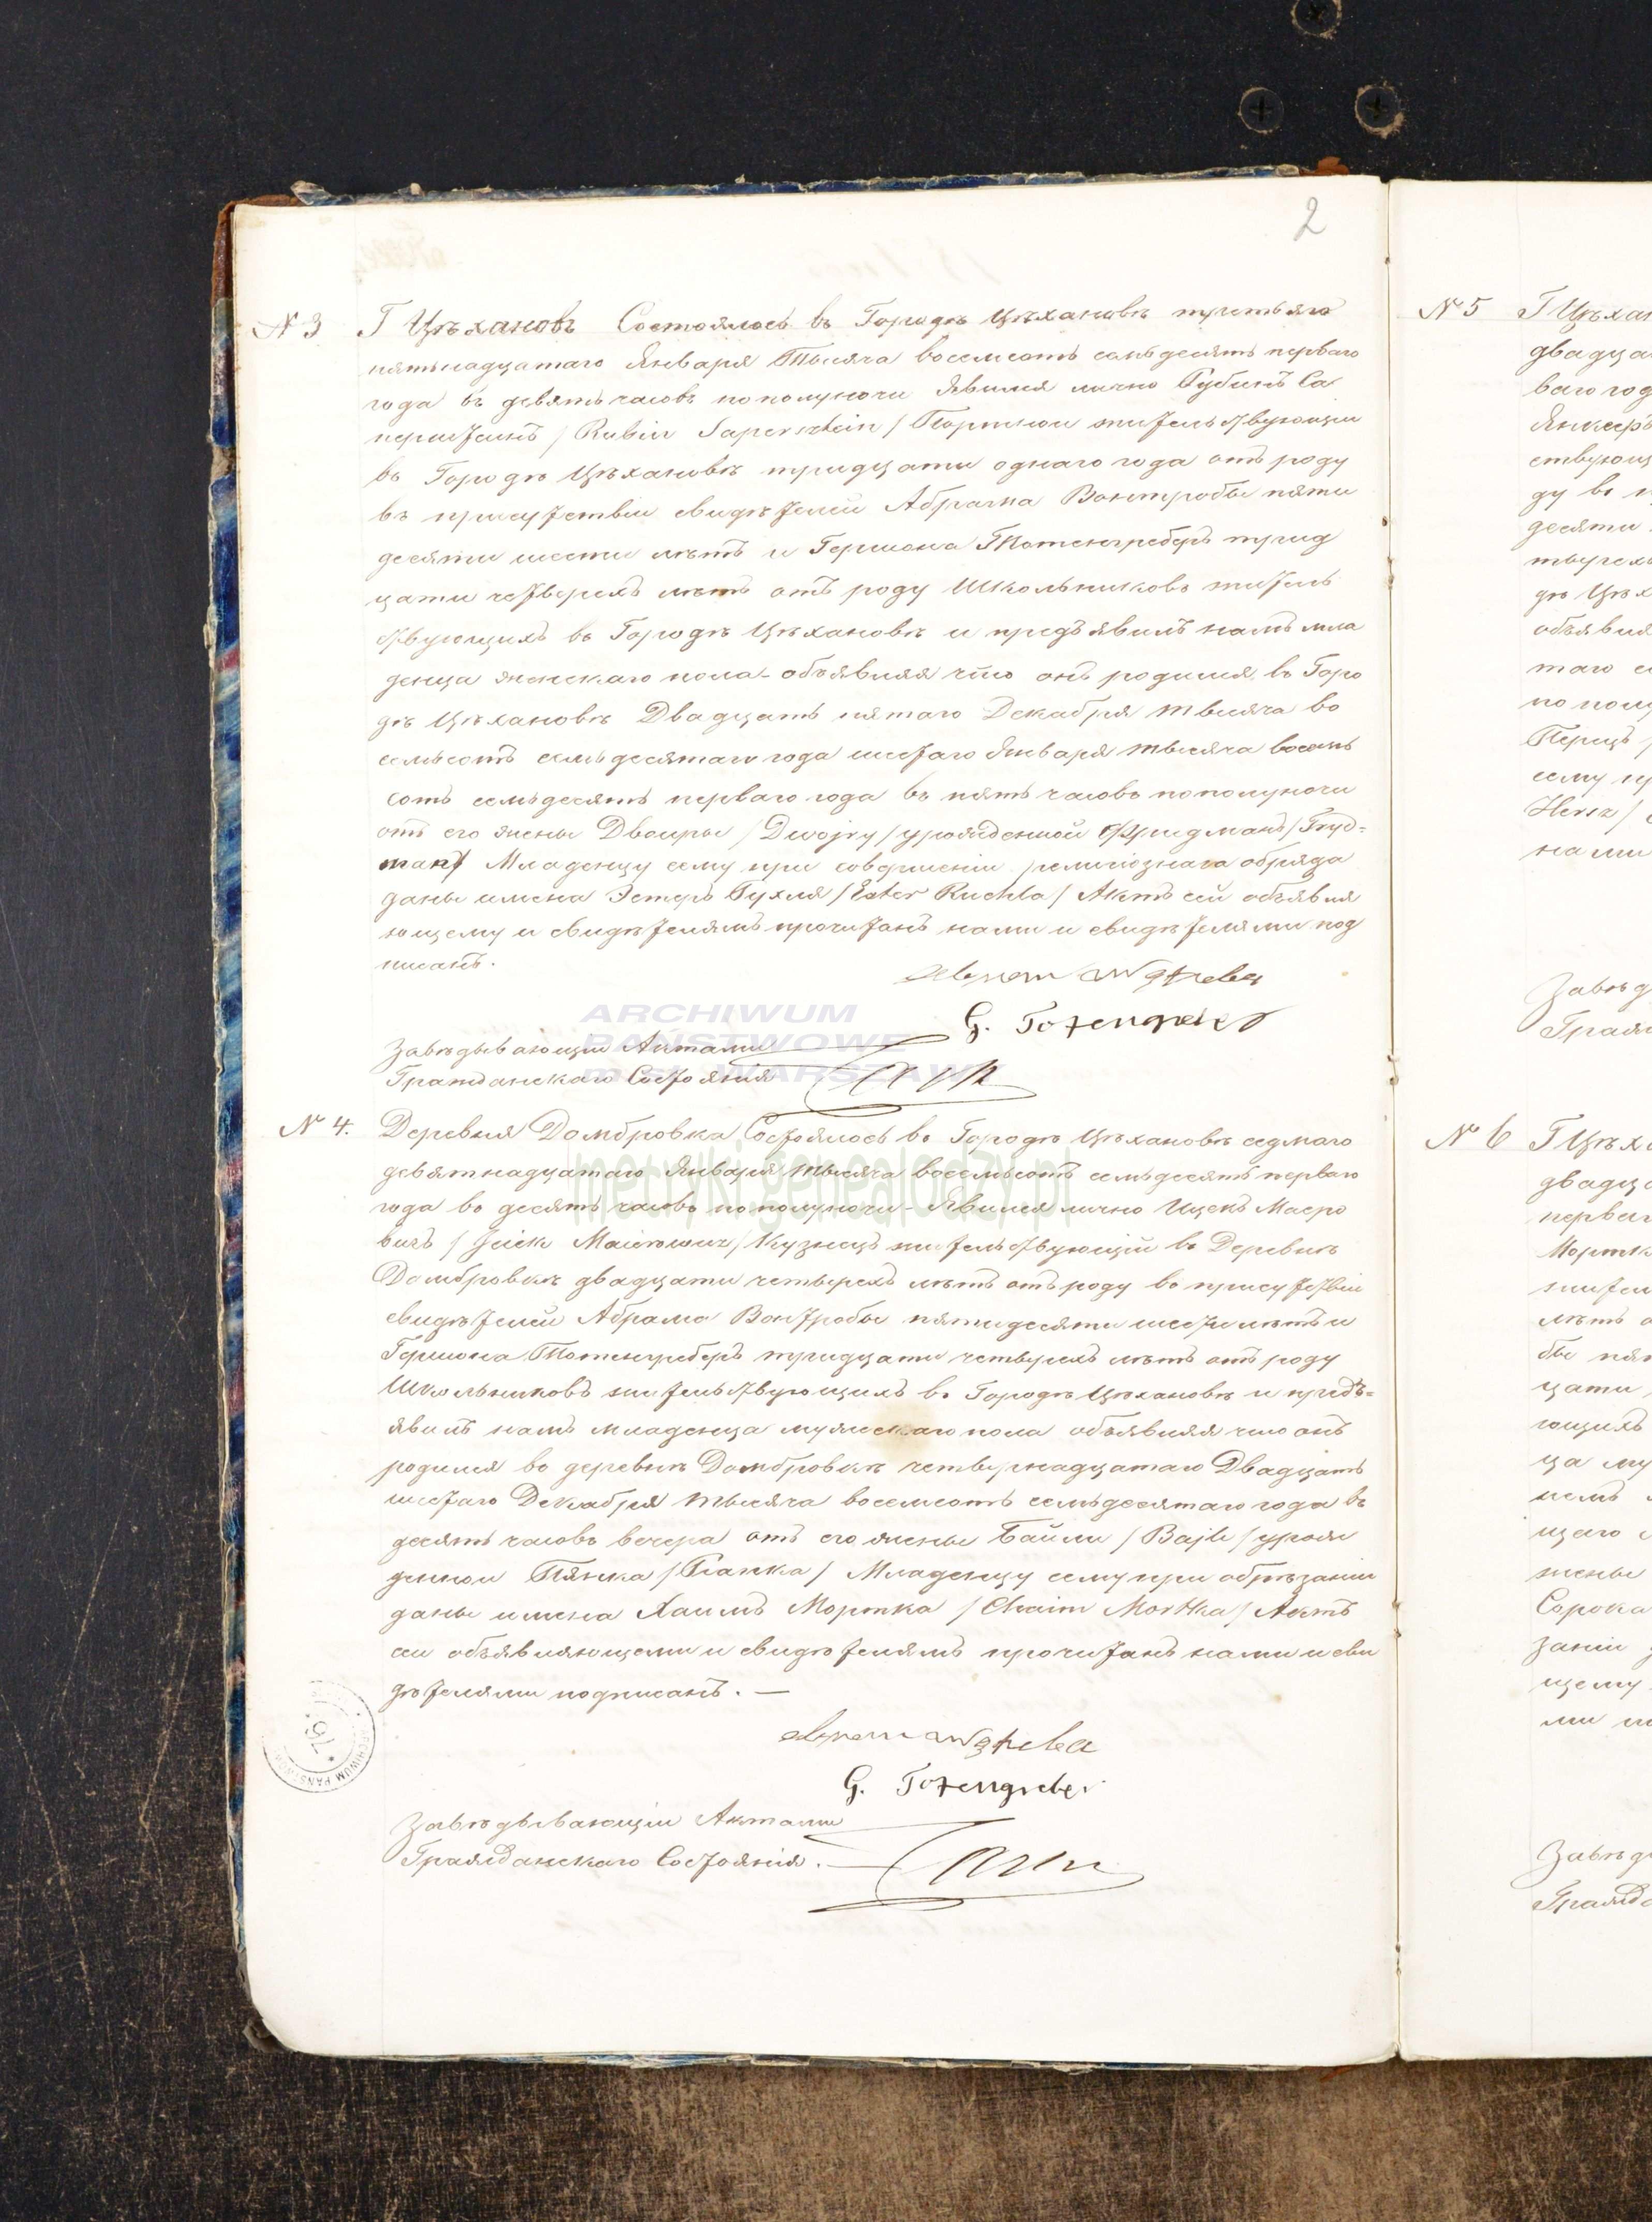 2
№ 3 Г Цѣхановъ Состоялось въ Городѣ Цѣхановѣ третьяго
пятьнадцатаго Января Тысяча восемсотъ семьдесятъ перваго
года въ девять часовъ пополуночи Явился лично Рубинъ Са
перштейнъ / Rubin Sapersztein / Портной жительствующии
въ Городѣ Цѣхановѣ тридцати однаго года отъ роду
въ присутствіи свидѣтелей Абрама Вонтробы пяти
десяти шести лѣтъ и Гершона Тотенгреберъ трид
цати четверехъ лѣтъ отъ роду Школьниковъ житель
ствующихъ въ Городѣ Цѣхановѣ и предъявилъ намъ мла
денца женскаго пола - объявляя что онъ родился въ Горо
дѣ Цѣхановѣ Двадцать пятаго Декабря тысяча во
семьсотъ семьдесятаго года шестаго Января тысяча восемь
сотъ семьдесятъ перваго года въ пять часовъ пополуночи
отъ его жены Двойры / Dwojry / урожденной Фридманъ /
Младенцу сему при совершеніи религіознаго обряда
даны имена Эстеръ Рухля / Ester Ruchla / Актъ сей объявля
ющему и свидѣтелямъ прочитанъ нами и свидѣтелями под
писанъ.
G. Totengreber
Завѣдывающіи Актами
Гражданскаго Состоянія
ARCHIWUM
PAŃSTWOWE
m.st. WARSZAWY
metryki.genealodzy.pl
№ 4. Деревня Домбровка Состоялось въ Городѣ Цѣхановѣ седмаго
девятнадцатаго Января тысяча восемьсотъ семьдесятъ перваго
года въ десять часовъ пополуночи - Явился лично Ицекъ Маеро
вичъ / Icick Maierowicz / Кузнецъ жительствующій въ Деревнѣ
Домбровкѣ двадцати четырехъ лѣтъ отъ роду въ присутствіи
свидѣтелей Абрама Вонтробы пятидесяти шести лѣтъ и
Гершона Тотенгреберъ тридцати четырехъ лѣтъ отъ роду
Школьниковъ жительствующихъ въ Городѣ Цѣхановѣ и предъ=
явилъ намъ младенца мужескаго пола объявляя что онъ
родился въ деревнѣ Домбровкѣ четырнадцатаго Двадцать
шестаго Декабря тысяча восемсотъ семьдесятаго года въ
десять часовъ вечера отъ его жены Байли / Bajli / урож
денной Пянка / Pianka / Младенцу сему при обрѣзаніи
даны имена Хаимъ Мортка / Chaim Mortka / Актъ
сеи объявляющему и свидѣтелямъ прочитанъ нами и сви
дѣтелями подписанъ. —
G. Totengreber
Завѣдывающіи Актами
Гражданскаго Состоянія.
76
№ 5 Г Цѣхан
двадца
ваго год
ствующ
ду въ
десяти
дѣ Цѣх
объявля
таго
по полу
Перецъ
сему
Hersz /
нами
Завѣд
Граж
№ 6 Г Цѣха
двадца
перваг
Мортк
жител
лѣтъ о
бы пят
цати
ющихъ
ца му
щаго
жены
Сорока
заніи
щему
ми
Завѣды
Гражда